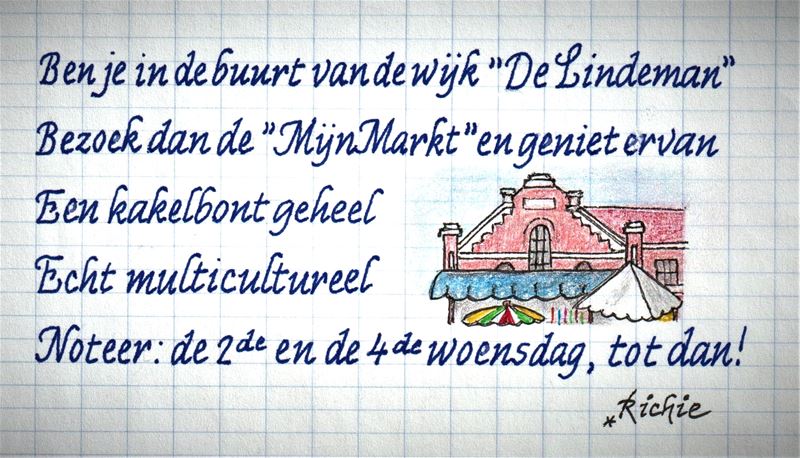 Ben je in de buurt van de wijk "De Lindeman"
Bezoek dan de "MijnMarkt" en geniet ervan
Een kakelbont geheel
Echt multicultureel
Noteer: de 2de en de 4de woensdag, tot dan!
*Richie